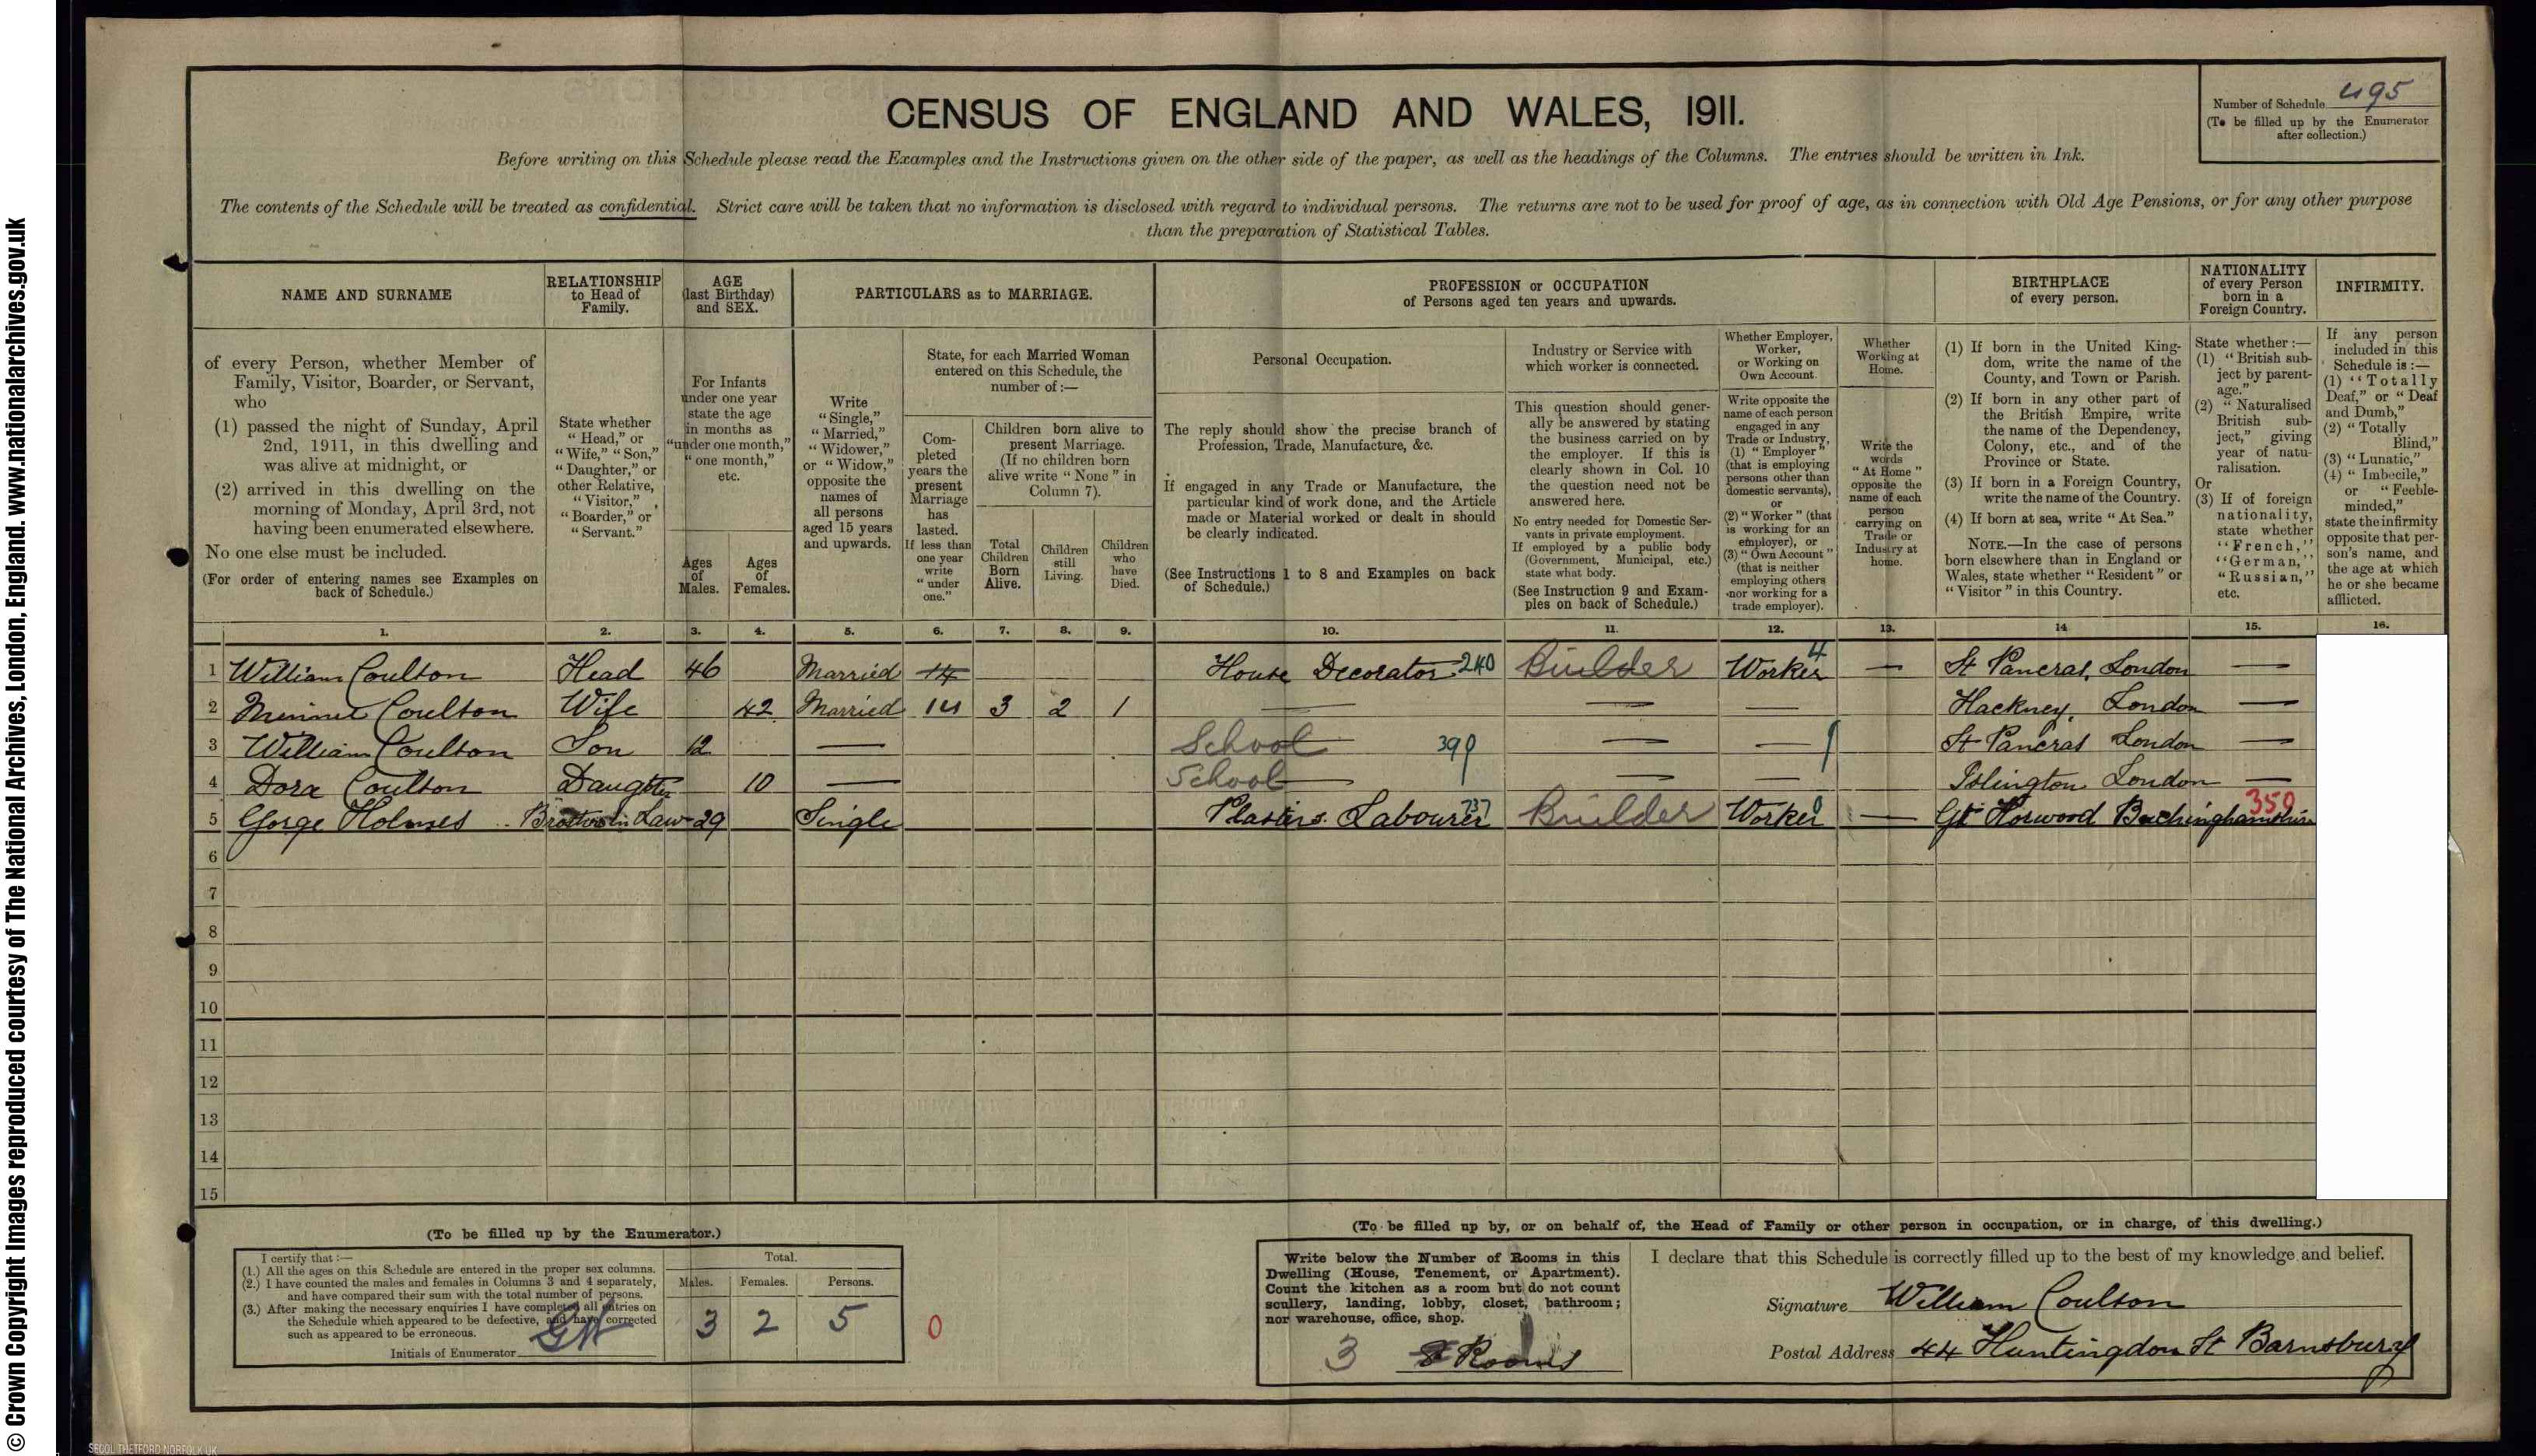 © Crown Copyright Images reproduced courtesy of The National Archives, London, England. www.nationalarchives.gov.uk
CENSUS OF ENGLAND AND WALES, 1911.
Number of Schedule 495
(To be filled up by the Enumerator
after collection.)
Before writing on this Schedule please read the Examples and the Instructions given on the other side of the paper, as well as the headings of the Columns. The entries should be written in Ink.
The contents of the Schedule will be treated as confidential. Strict care will be taken that no information is disclosed with regard to individual persons. The returns are not to be used for proof of age, as in connection with Old Age Pensions, or for any other purpose
than the preparation of Statistical Tables.
NAME AND SURNAME
RELATIONSHIP
to Head of
Family.
AGE
(last Birthday)
and SEX.
PARTICULARS as to MARRIAGE.
PROFESSION or OCCUPATION
of Persons aged ten years and upwards.
BIRTHPLACE
of every person.
NATIONALITY
of every Person
born in a
Foreign Country.
INFIRMITY.
of every Person, whether Member of
Family, Visitor, Boarder, or Servant,
who
(1) passed the night of Sunday, April
2nd, 1911, in this dwelling and
was alive at midnight, or
(2) arrived in this dwelling on the
morning of Monday, April 3rd, not
having been enumerated elsewhere.
No one else must be included.
(For order of entering names see Examples on
back of Schedule.)
State whether
"Head," or
"Wife," "Son,"
"Daughter," or
other Relative,
"Visitor,"
"Boarder," or
"Servant."
For Infants
under one year
state the age
in months as
"under one month,"
"one month,"
etc.
Ages
of
Males.
Ages
of
Females.
Write
"Single,"
"Married,"
"Widower,"
or "Widow,"
opposite the
names of
all persons
aged 15 years
and upwards.
State, for each Married Woman
entered on this Schedule, the
number of :—
Com-
pleted
years the
present
Marriage
has
lasted.
If less than
one year
write
"under
one."
Children born alive to
present Marriage.
(If no children born
alive write "None" in
Column 7).
Total
Children
Born
Alive.
Children
still
Living.
Children
who
have
Died.
Personal Occupation.
The reply should show the precise branch of
Profession, Trade, Manufacture, &c.
If engaged in any Trade or Manufacture, the
particular kind of work done, and the Article
made or Material worked or dealt in should
be clearly indicated.
(See Instructions 1 to 8 and Examples on back
of Schedule.)
Industry or Service with
which worker is connected.
This question should gener-
ally be answered by stating
the business carried on by
the employer. If this is
clearly shown in Col. 10
the question need not be
answered here.
No entry needed for Domestic Ser-
vants in private employment.
If employed by a public body
(Government, Municipal, etc.)
state what body.
(See Instruction 9 and Exam-
ples on back of Schedule.)
Whether Employer,
Worker,
or Working on
Own Account.
Write opposite the
name of each person
engaged in any
Trade or Industry,
(1) "Employer"
(that is employing
persons other than
domestic servants),
or
(2) "Worker" (that
is working for an
employer), or
(3) "Own Account"
(that is neither
employing others
nor working for a
trade employer).
Whether
Working at
Home.
Write the
words
"At Home"
opposite the
name of each
person
carrying on
Trade or
Industry at
home.
(1) If born in the United King-
dom, write the name of the
County, and Town or Parish.
(2) If born in any other part of
the British Empire, write
the name of the Dependency,
Colony, etc., and of the
Province or State.
(3) If born in a Foreign Country,
write the name of the Country.
(4) If born at sea, write "At Sea."
NOTE.—In the case of persons
born elsewhere than in England or
Wales, state whether "Resident" or
"Visitor" in this Country.
State whether :—
(1) "British sub-
ject by parent-
age."
(2) "Naturalised
British sub-
ject," giving
year of natu-
ralisation.
Or
(3) If of foreign
nationality,
state whether
"French,"
"German,"
"Russian,"
etc.
If any person
included in this
Schedule is :—
(1) "Totally
Deaf," or "Deaf
and Dumb,"
(2) "Totally
Blind,"
(3) "Lunatic,"
(4) "Imbecile,"
or "Feeble-
minded,"
state the infirmity
opposite that per-
son's name, and
the age at which
he or she became
afflicted.
1. 2. 3. 4. 5. 6. 7. 8. 9. 10. 11. 12. 13. 14 15. 16.
1 William Coulton Head 46 Married 14 House Decorator 240 Builder Worker 4 — St Pancras, London —
2 Minnie Coulton Wife 42 Married 14 3 2 1 — — — Hackney, London —
3 William Coulton Son 12 — School 390 — — St Pancras London —
4 Dora Coulton Daughter 10 — School — — Islington London —
5 Gorge Holmes Brother in Law 29 Single Plasters Labourer 737 Builder Worker 0 — Gt Horwood Buckinghamshire 350
6
7
8
9
10
11
12
13
14
15
(To be filled up by the Enumerator.)
I certify that :—
(1.) All the ages on this Schedule are entered in the proper sex columns.
(2.) I have counted the males and females in Columns 3 and 4 separately,
and have compared their sum with the total number of persons.
(3.) After making the necessary enquiries I have completed all entries on
the Schedule which appeared to be defective, and have corrected
such as appeared to be erroneous.
Initials of Enumerator
Total.
Males. Females. Persons.
3 2 5
0
(To be filled up by, or on behalf of, the Head of Family or other person in occupation, or in charge, of this dwelling.)
Write below the Number of Rooms in this
Dwelling (House, Tenement, or Apartment).
Count the kitchen as a room but do not count
scullery, landing, lobby, closet, bathroom;
nor warehouse, office, shop.
3 Rooms
I declare that this Schedule is correctly filled up to the best of my knowledge and belief.
Signature William Coulton
Postal Address 44 Huntingdon St Barnsbury
SEGOL THETFORD NORFOLK UK